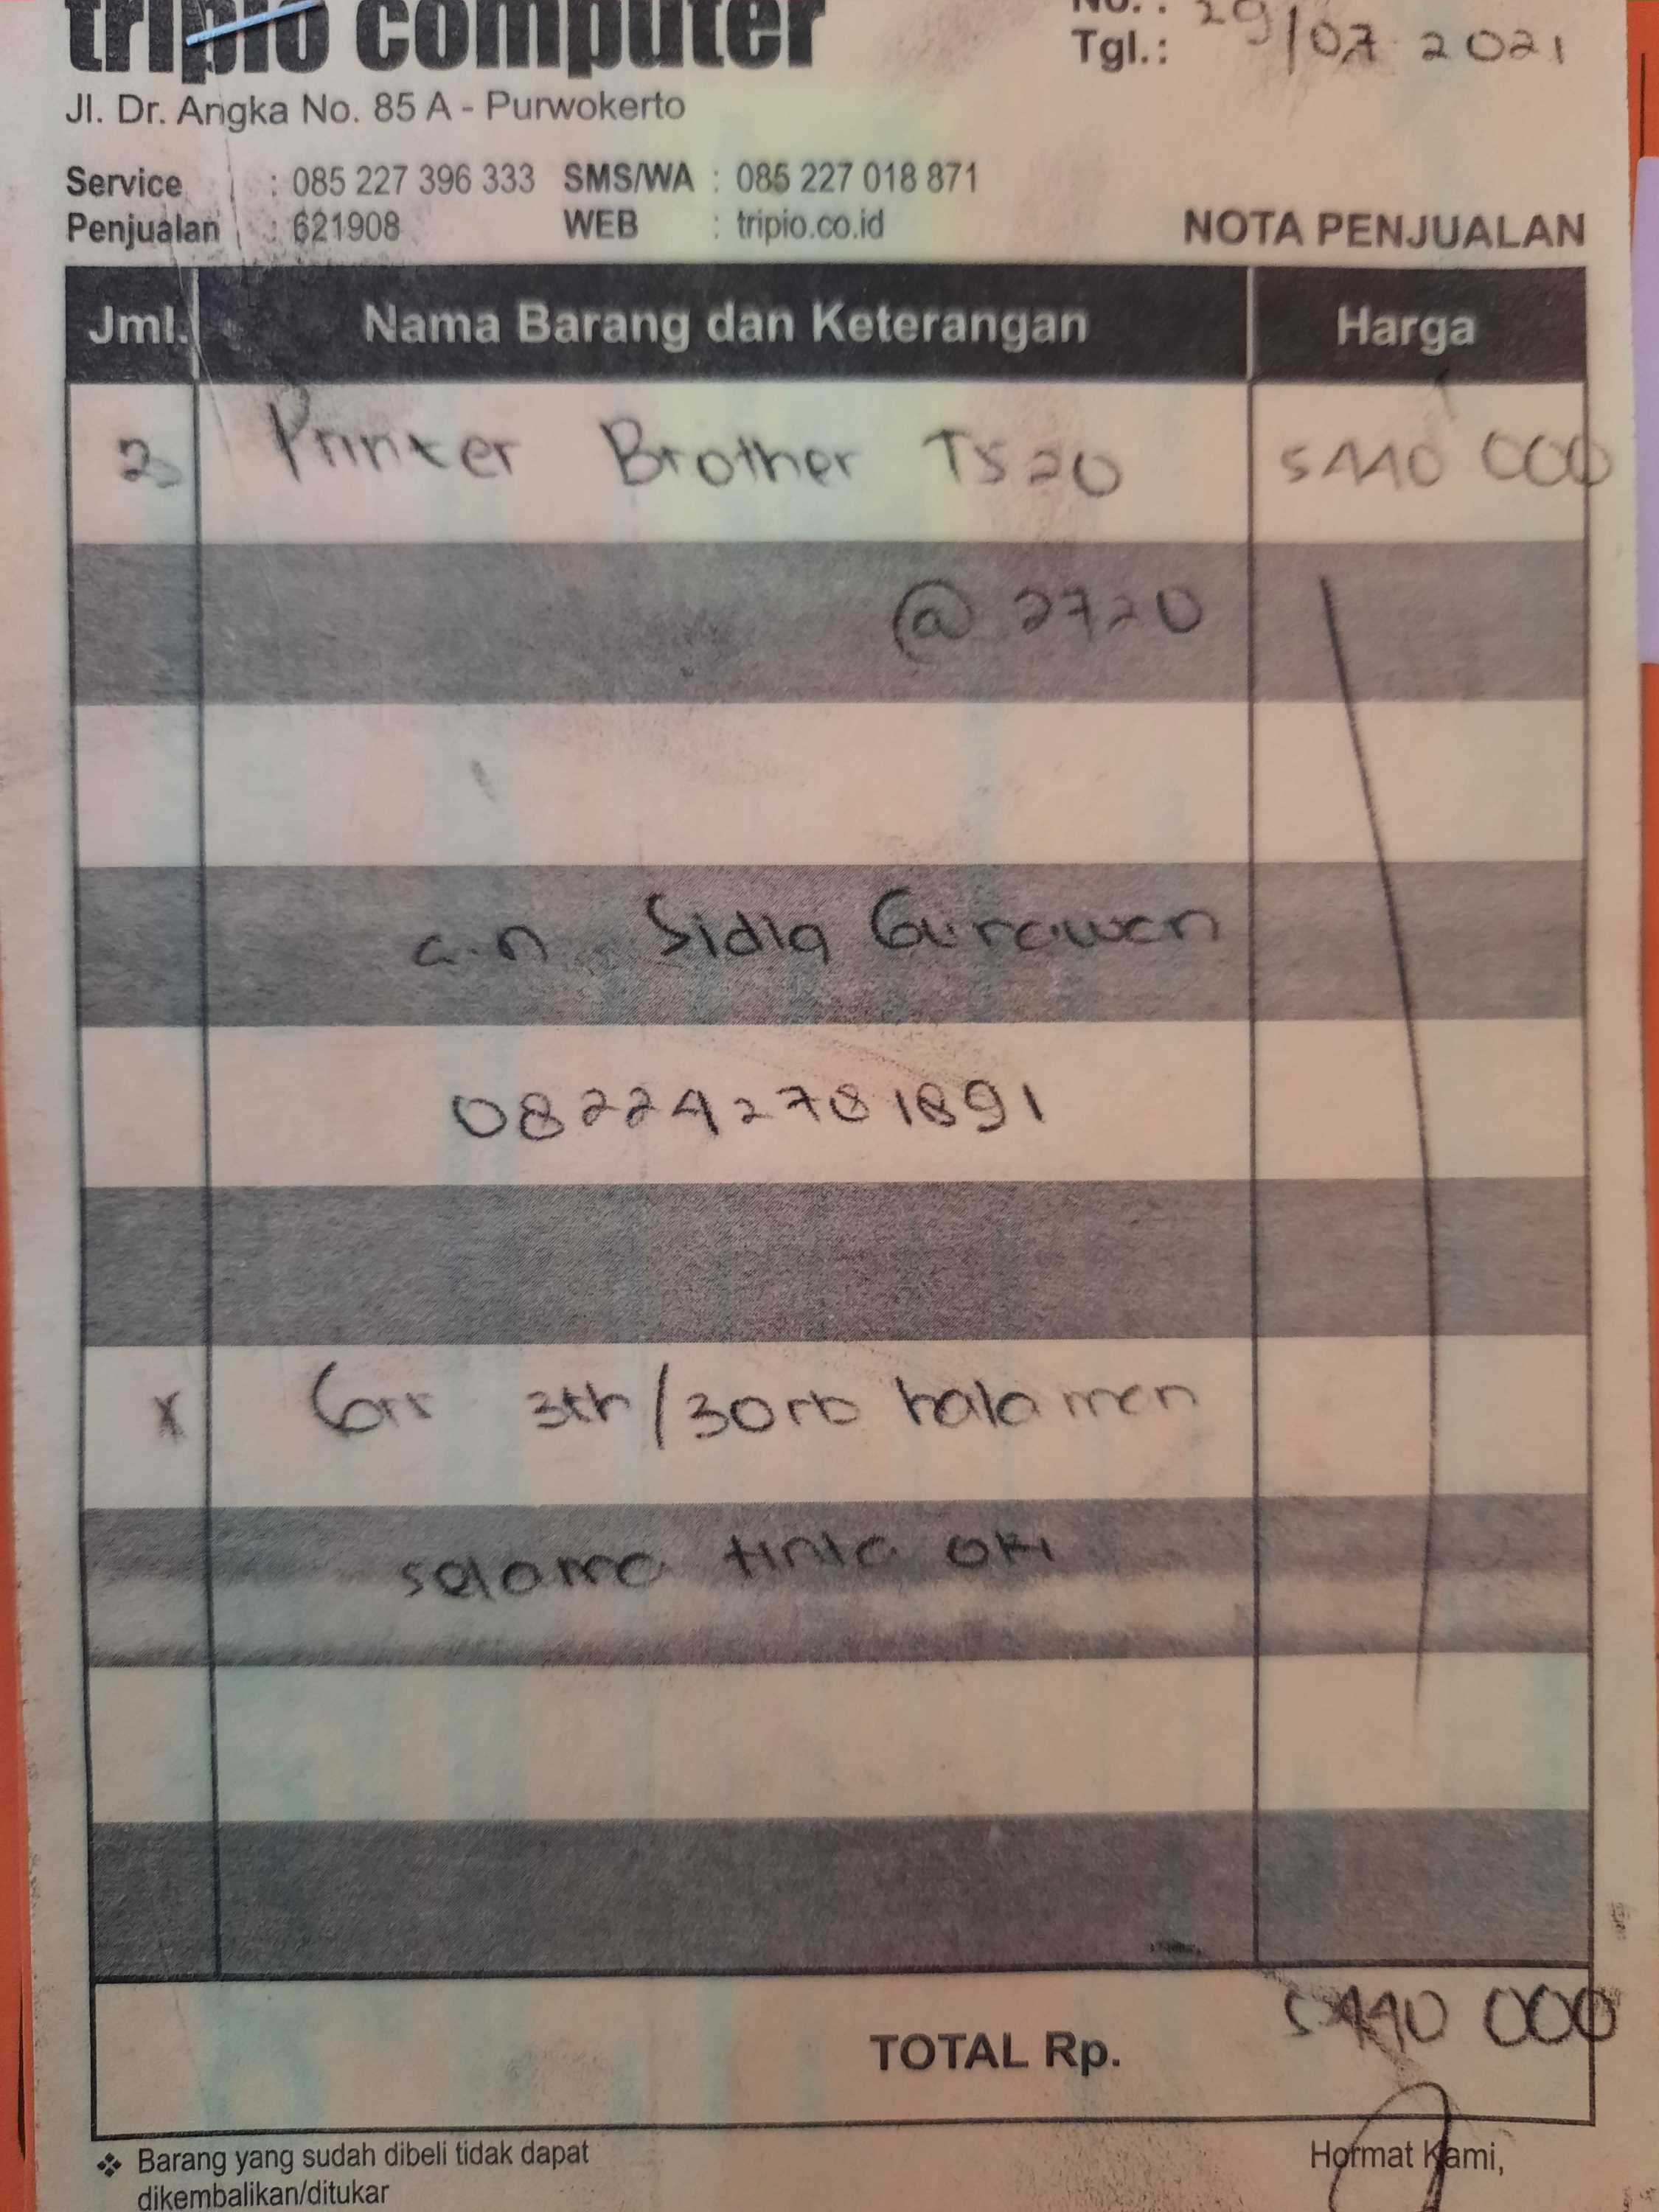 tripio computer
No. :
Tgl.: 29/07 2021
Jl. Dr. Angka No. 85 A - Purwokerto
Service : 085 227 396 333 SMS/WA : 085 227 018 871
Penjualan : 621908 WEB : tripio.co.id
NOTA PENJUALAN
Jml. Nama Barang dan Keterangan Harga
2 Printer Brother T520 5440 000
@ 2720
a.n Sidiq Gunawan
082242781891
x Grr 3th/30rb halaman
selama tinta ori
TOTAL Rp. 5440 000
❖ Barang yang sudah dibeli tidak dapat
dikembalikan/ditukar
Hormat Kami,